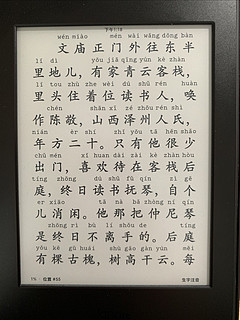 下午7:18
wén miào mén wài wǎng dōng bàn
文庙正门外往东半
lǐ dì yǒu jiā qīng yún kè zhàn
里地儿，有家青云客栈，
lǐ tou zhù zhe wèi dú shū rén huàn
里头住着位读书人，唤
chén shān xī zé zhōu rén shì
作陈敬，山西泽州人氏，
nián èr shí zhǐ yǒu tā hěn shǎo
年方二十。只有他很少
chū mén xǐ huan dài zài kè zhàn hòu
出门，喜欢待在客栈后
tíng zhōng dú shū fǔ qín zì gě
庭，终日读书抚琴，自个
er xiāo tā nà bǎ zhòng ní qín
儿消闲。他那把仲尼琴
zhōng rì bù lí shǒu de hòu tíng
是终日不离手的。后庭
yǒu kē gǔ huái shù gāo gān yún měi
有棵古槐，树高干云。每
1% · 位置 #55
生字注音